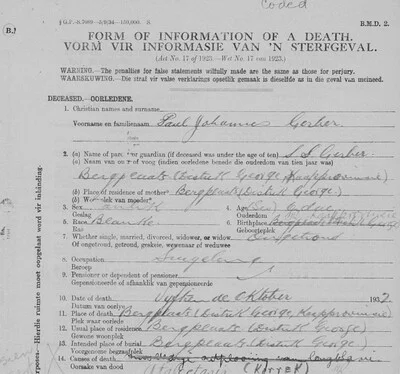 Coded
§ G.P.-S.7069—5/9/34—150,000. S
B.M.D. 2.
B.I
FORM OF INFORMATION OF A DEATH.
VORM VIR INFORMASIE VAN 'N STERFGEVAL.
(Act No. 17 of 1923.—Wet No. 17 van 1923.)
WARNING.—The penalties for false statements wilfully made are the same as those for perjury.
WAARSKUWING.—Die straf vir valse verklarings opsetlik gemaak is dieselfde as in die geval van meineed.
DECEASED.—OORLEDENE.
1. Christian names and surname
Voorname en familienaam Paul Johannes Gerber
2. (a) Name of parent or guardian (if deceased was under the age of ten) S.S. Gerber
Naam van ouer of voog (indien oorledene benede die ouderdom van tien jaar was)
Bergplaats (Distrik George, Kaapprovinsie)
(b) Place of residence of mother Bergplaats (Distrik George)
(b) Woonplek van moeder
3. Sex manlik 4. Age
Geslag Ouderdom
5. Race Blanke 6. Birthplace Bergplaats
Ras Geboorteplek
7. Whether single, married, divorced, widower, or widow Ongetroud
Of ongetroud, getroud, geskeie, wewenaar of weduwee
8. Occupation Suigeling
Beroep
9. Pensioner or dependent of pensioner
Gepensioeneerde of afhanklik van gepensioeneerde
10. Date of death Vyftien de Oktober 193
Datum van oorlye
11. Place of death Bergplaats (Distrik George, Kaapprovinsie)
Plek waar oorlede
12. Usual place of residence Bergplaats (Distrik George)
Gewone woonplek
13. Intended place of burial Bergplaats (Distrik George)
Voorgenome begraafplek
14. Causes of death
Oorsake van dood (KORREK)
rposes.—Hierdie ruimte moet oopgelaat word vir inbinding.